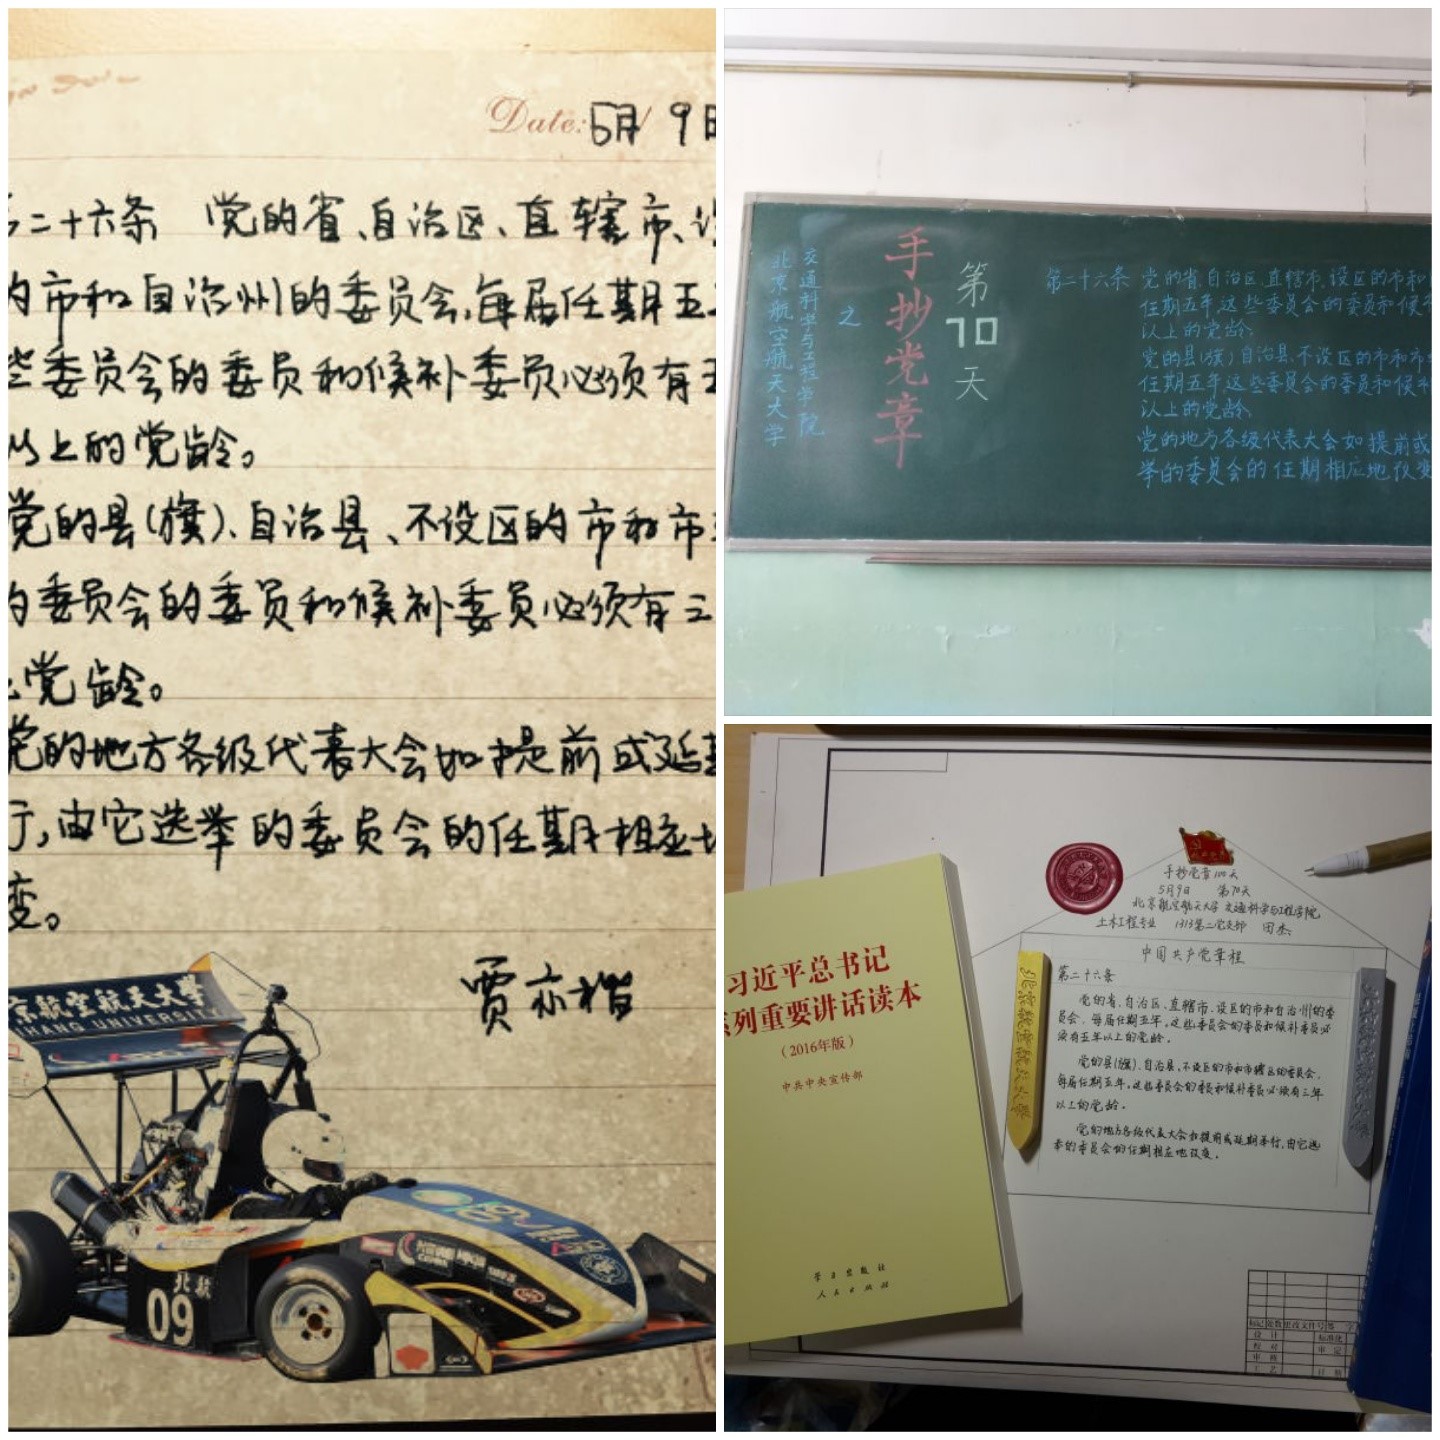 Date: 5月 9日
二十六条 党的省、自治区、直辖市、设
的市和自治州的委员会,每届任期五
些委员会的委员和候补委员必须有五
以上的党龄。
党的县(旗)、自治县、不设区的市和市
的委员会的委员和候补委员必须有三
党龄。
党的地方各级代表大会如提前或延
行,由它选举的委员会的任期相应地
变。
贾亦楷
京航空航天大学
HANG UNIVERSITY
北航
09
交通科学与工程学院
北京航空航天大学
之
手抄党章
第70天
第二十六条 党的省、自治区、直辖市、设区的市和
任期五年,这些委员会的委员和候
以上的党龄、
党的县(旗)自治县、不设区的市和市
任期五年这些委员会的委员和候补
以上的党龄、
党的地方各级代表大会如提前或
举的委员会的任期相应地改变
习近平总书记
系列重要讲话读本
(2016年版)
中共中央宣传部
学习出版社
人民出版社
手抄党章100天
5月9日 第70天
北京航空航天大学 交通科学与工程学院
土木工程专业 1313第二党支部 田杰
中国共产党章程
第二十六条
党的省、自治区、直辖市、设区的市和自治州的委
员会,每届任期五年。这些委员会的委员和候补委员必
须有五年以上的党龄。
党的县(旗)、自治县、不设区的市和市辖区的委员会,
每届任期五年。这些委员会的委员和候补委员必须有三年
以上的党龄。
党的地方各级代表大会如提前或延期举行,由它选
举的委员会的任期相应地改变。
北京航空航天大学
北京航空航天大学
标记 处数 更改文件号 签 字
设 计 标准化
校 对 审 定
审 核
工 艺 日 期